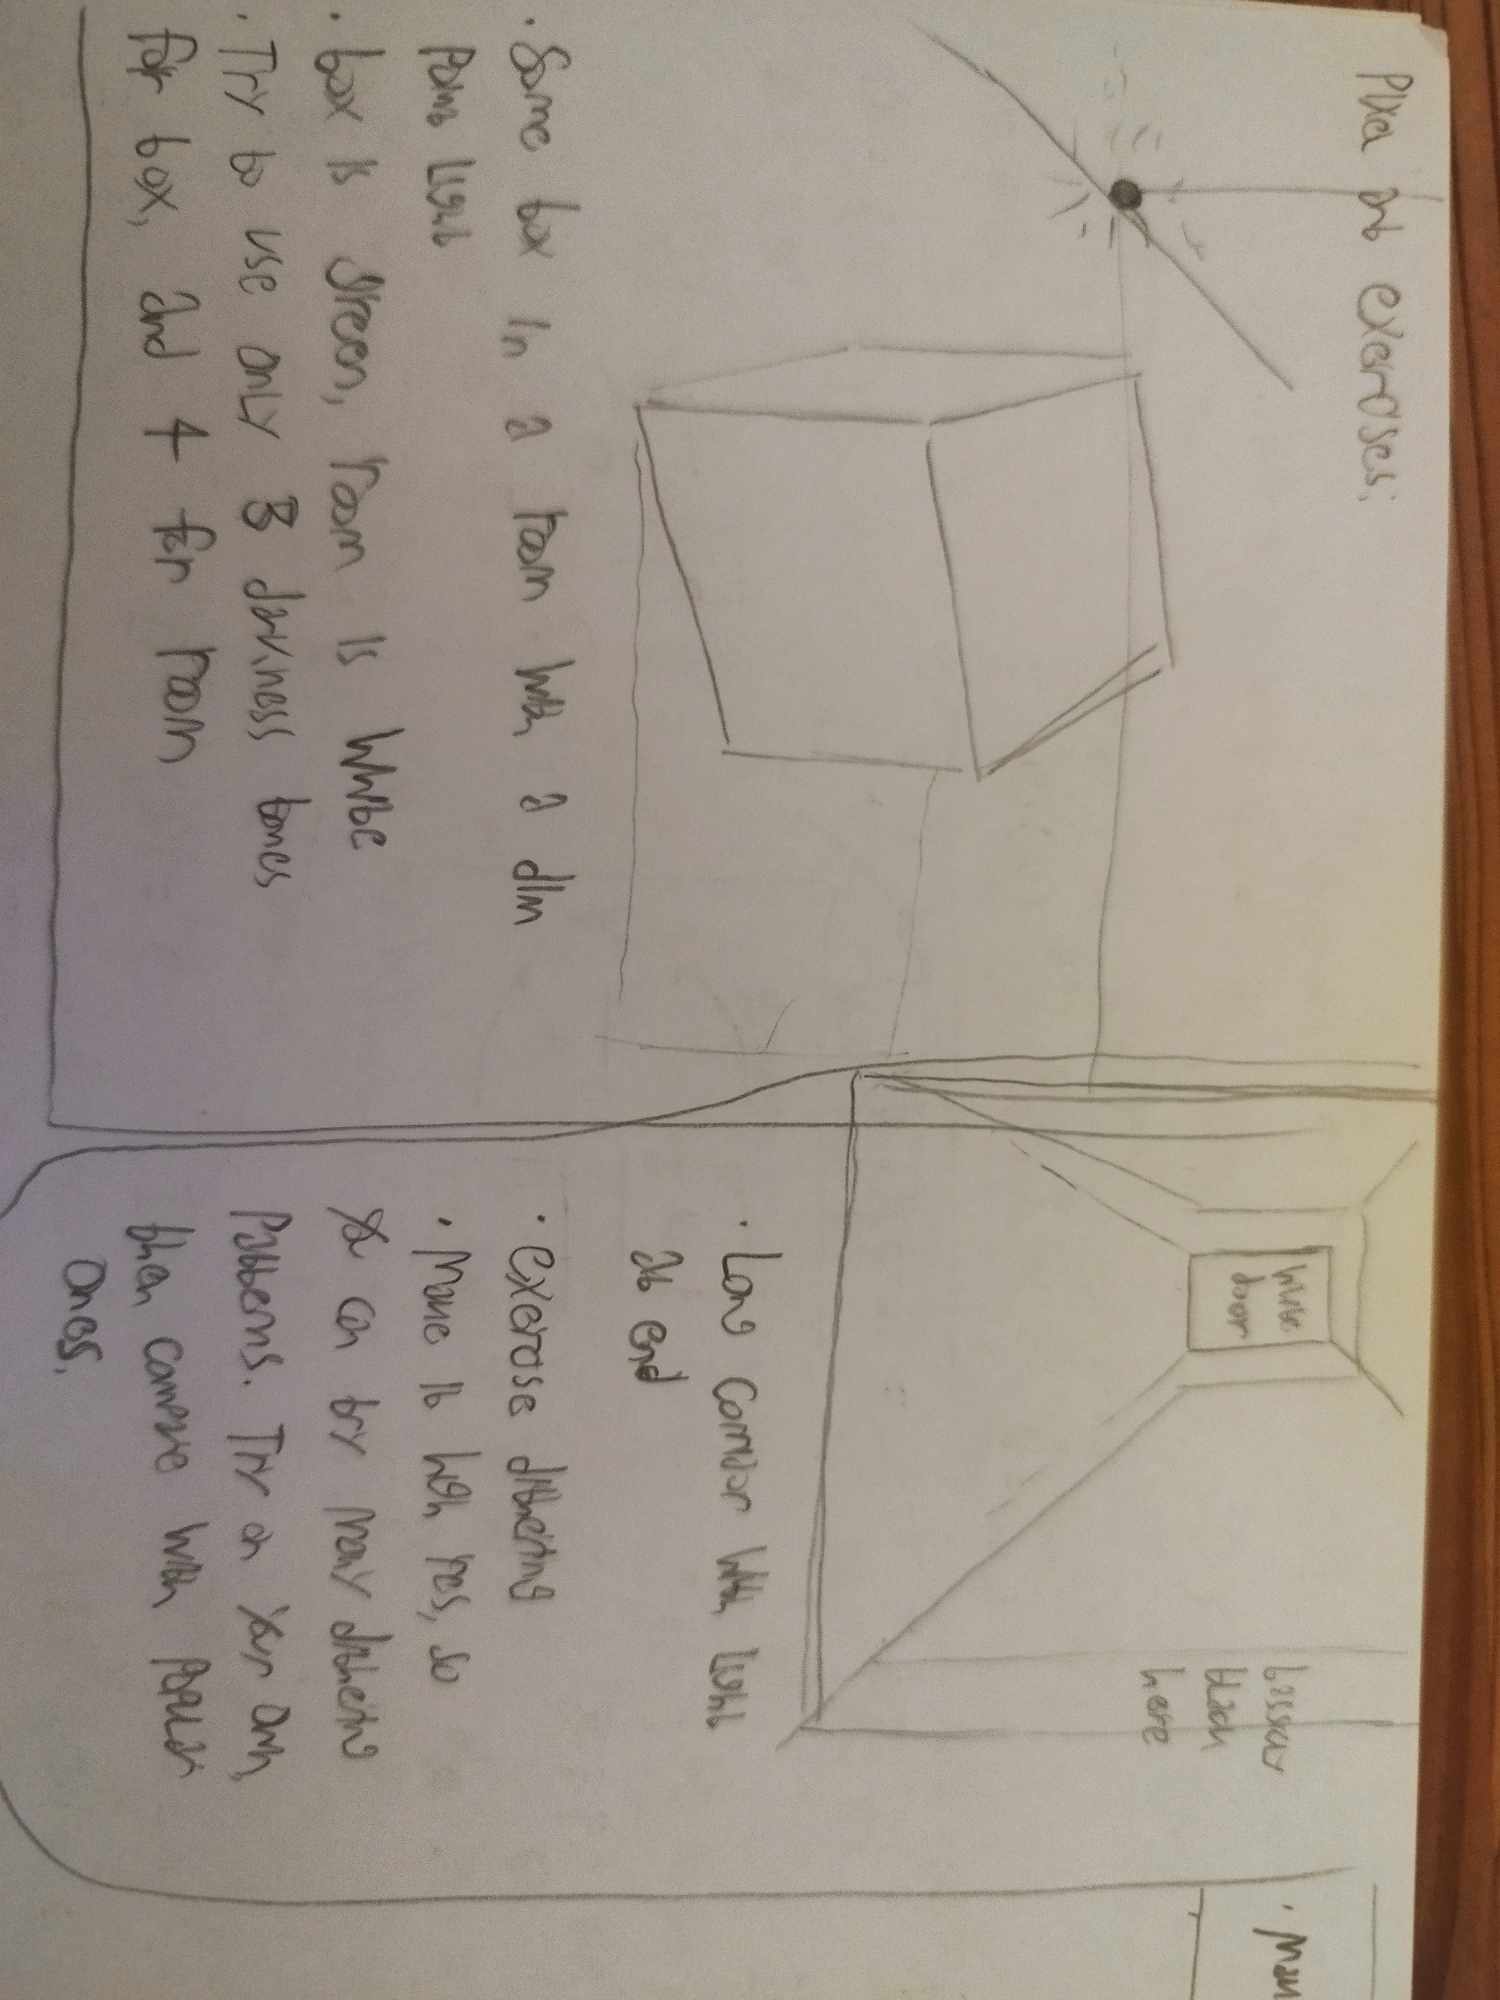 Pixel art exercises:
· Same box in a room with a dim
point light
· box is green, room is white
· Try to use only 3 darkness tones
for box, and 4 for room
white
door
black
here
· Long corridor with light
at end
· exercise dithering
· Make it high res, so
you can try many dithering
patterns. Try on your own,
then compare with popular
ones.